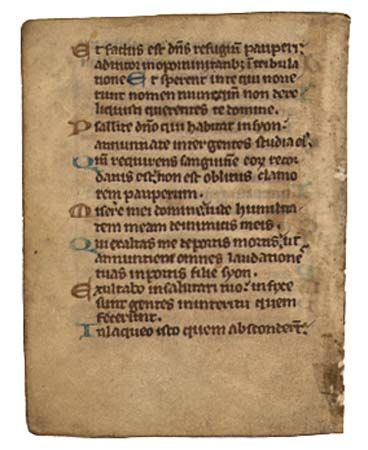 Et factus est dñs refugiũ pauperi:
adiutor in oportunitatib; in tribula
tione Et sperent in te qui noue
runt nomen tuum qm̃ non dere
liquisti querentes te domine.
Psallite dño qui habitat in syon:
annuntiate inter gentes studia ei᷒.
Qm̃ requirens sanguinẽ eoꝝ recor
datus est: non est oblitus clamo
rem pauperum.
Misere mei domine: uide humilita
tem meam de inimicis meis.
Qui exaltas me de portis mortis: ut
annuntiem omnes laudationes
tuas in portis filie syon.
Exultabo in salutari tuo: infixe
sunt gentes in interitu quem
fecerunt.
In laqueo isto quem absconderũt: